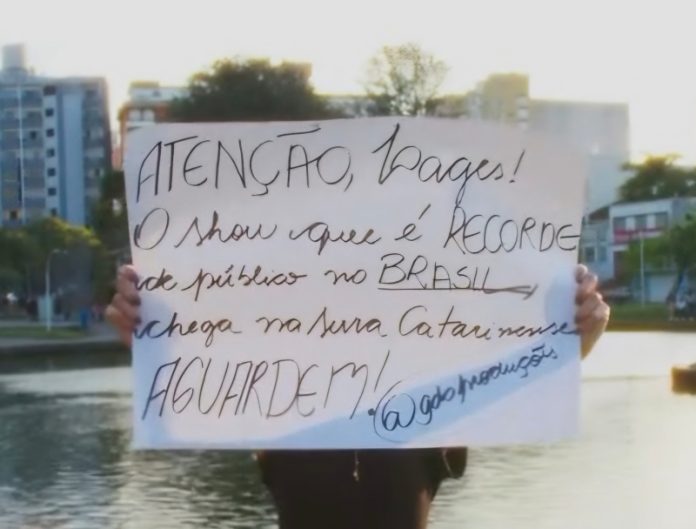 ATENÇÃO, Lages!
O show que é RECORDE
de público no BRASIL
chega na Serra Catarinense
AGUARDEM!
@gdoproduções